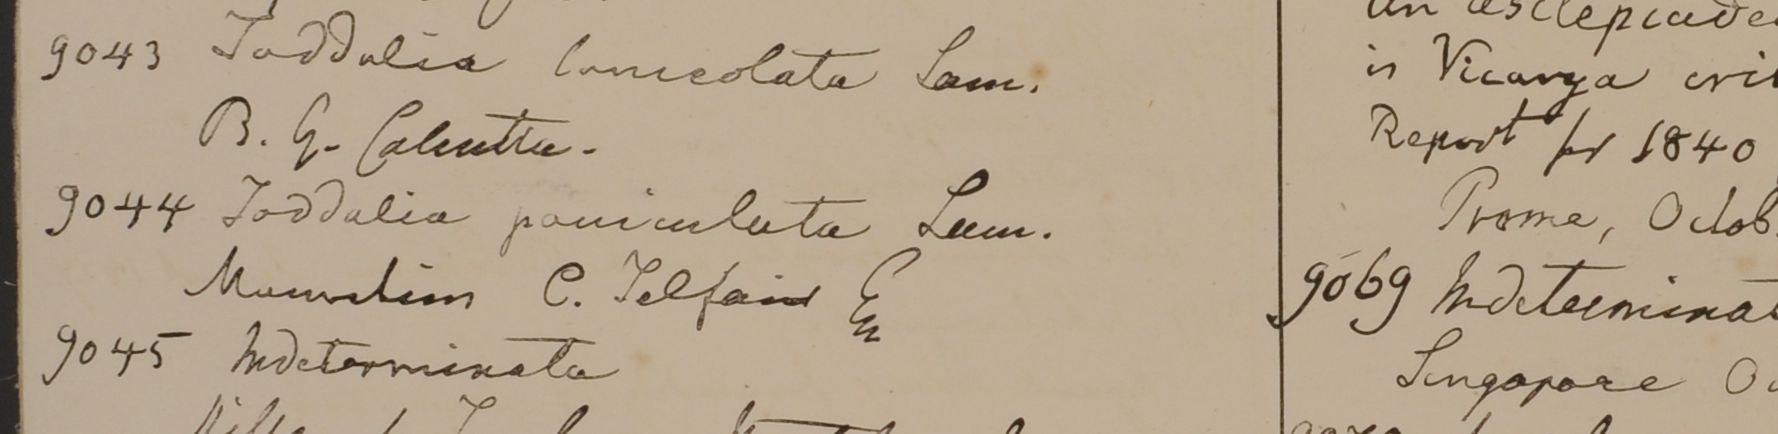 9043 Toddalia lanceolata Lam.
B. G. Calcutta.
9044 Toddalia paniculata Lam.
Mauritius C. Telfair
9045 Indeterminata
an asclepiade
is Vicarya
Report for 1840
Prome, Octob.
9069 Indeterminat
Singapore